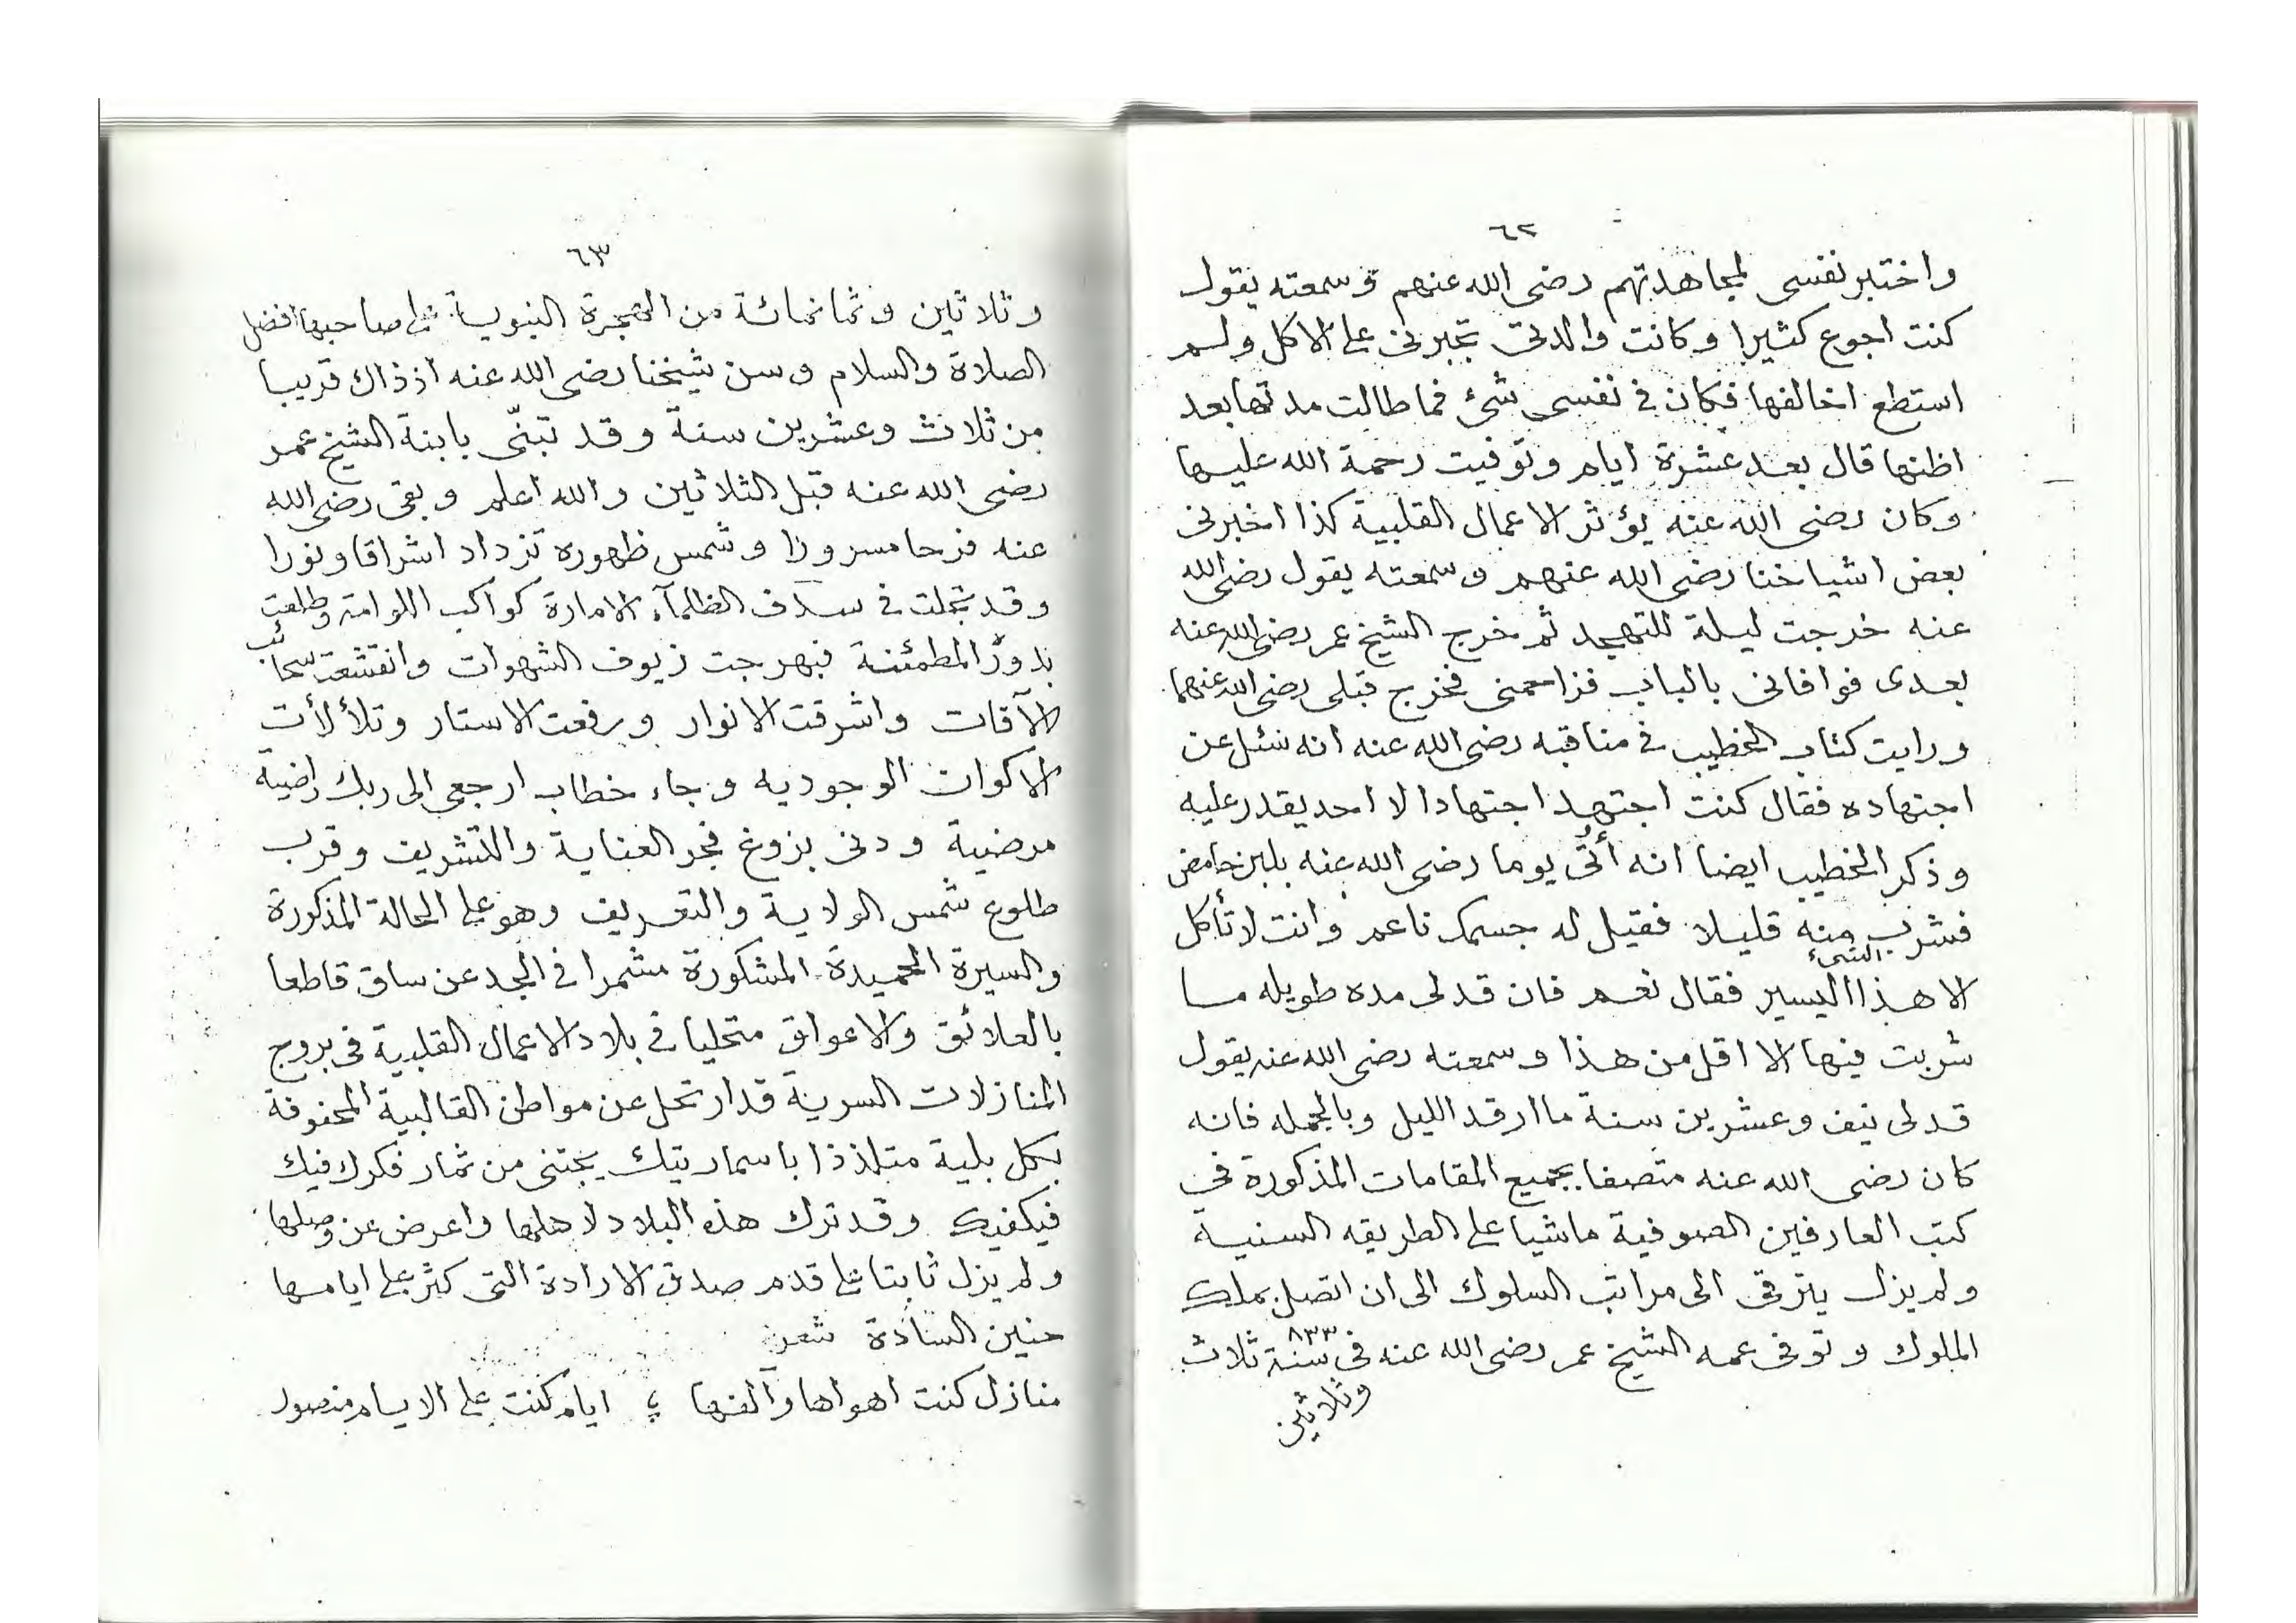 ٦٢
واختبر نفسى لمجاهدتهم رضى الله عنهم وسمعته يقول
كنت اجوع كثيرا وكانت والدتى تجبرنى على الاكل ولم
استطع اخالفها فكان فى نفسى شئ فما طالت مدتها بعد
اظنها قال بعد عشرة ايام وتوفيت رحمة الله عليها
وكان رضى الله عنه يؤثر الاعمال القلبية كذا اخبرنى
بعض اشياخنا رضى الله عنهم وسمعته يقول رضى الله
عنه خرجت ليلة للتهجد ثم خرج الشيخ عمر رضى الله عنه
بعدى فوافانى بالباب فزاحمنى فخرج قبلى رضى الله عنهما
ورايت كتاب الخطيب فى مناقبه رضى الله عنه انه سئل عن
اجتهاده فقال كنت اجتهد اجتهادا لا احد يقدر عليه
وذكر الخطيب ايضا انه أُتى يوما رضى الله عنه بلبن حامض
فشرب منه قليلا فقيل له جسمك ناعم وانت لا تأكل
الا هذا الشىء اليسير فقال نعم فان قد لى مده طويله ما
شربت فيها الا اقل من هذا وسمعته رضى الله عنه يقول
قد لى نيف وعشرين سنة ما ارقد الليل وبالجمله فانه
كان رضى الله عنه متصفا بجميع المقامات المذكورة فى
كتب العارفين الصوفية ماشيا على الطريقه السنيه
ولم يزل يترقى الى مراتب السلوك الى ان اتصل بملك
الملوك وتوفى عمه الشيخ عمر رضى الله عنه فى سنة ٨٣٣ ثلاث
وثلاثين
٦٣
وثلاثين وثمانمائة من الهجرة النبوية على صاحبها افضل
الصلاة والسلام وسن شيخنا رضى الله عنه اذ ذاك قريبا
من ثلاث وعشرين سنة وقد تبنّى بابنة الشيخ عمر
رضى الله عنه قبل الثلاثين والله اعلم وبقى رضى الله
عنه فرحا مسرورا وشمس ظهوره تزداد اشراقا ونورا
وقد تجلت فى سدف الظلمآء الامارة كواكب اللوامة وطلعت
بدور المطمئنة فبهرجت زيوف الشهوات وانقشعت سحائب
الآفات واشرقت الانوار ورفعت الاستار وتلألأت
الاكوان الوجوديه وجاء خطاب ارجعى الى ربك راضية
مرضية ودنى بزوغ فجر العناية والتشريف وقرب
طلوع شمس الولاية والتعريف وهو على الحالة المذكورة
والسيرة الحميدة المشكورة مشمرا فى الجد عن ساق قاطعا
بالعلائق والاعواق متحليا فى بلاد الاعمال القلبية فى بروج
المنازلات السرية قد ارتحل عن مواطن القالبية المحفوفة
بكل بلية متلذذا باسمار يتك يجتنى من ثمار فكرك فيك
فيكفيك وقد ترك هذه البلاد لاهلها واعرض عن وصلها
ولم يزل ثابتا على قدم صدق الارادة التى كثر على ايامها
حنين السادة شعر
منازل كنت اهواها وآلفها ؛ ايام كنت على الايام منصور